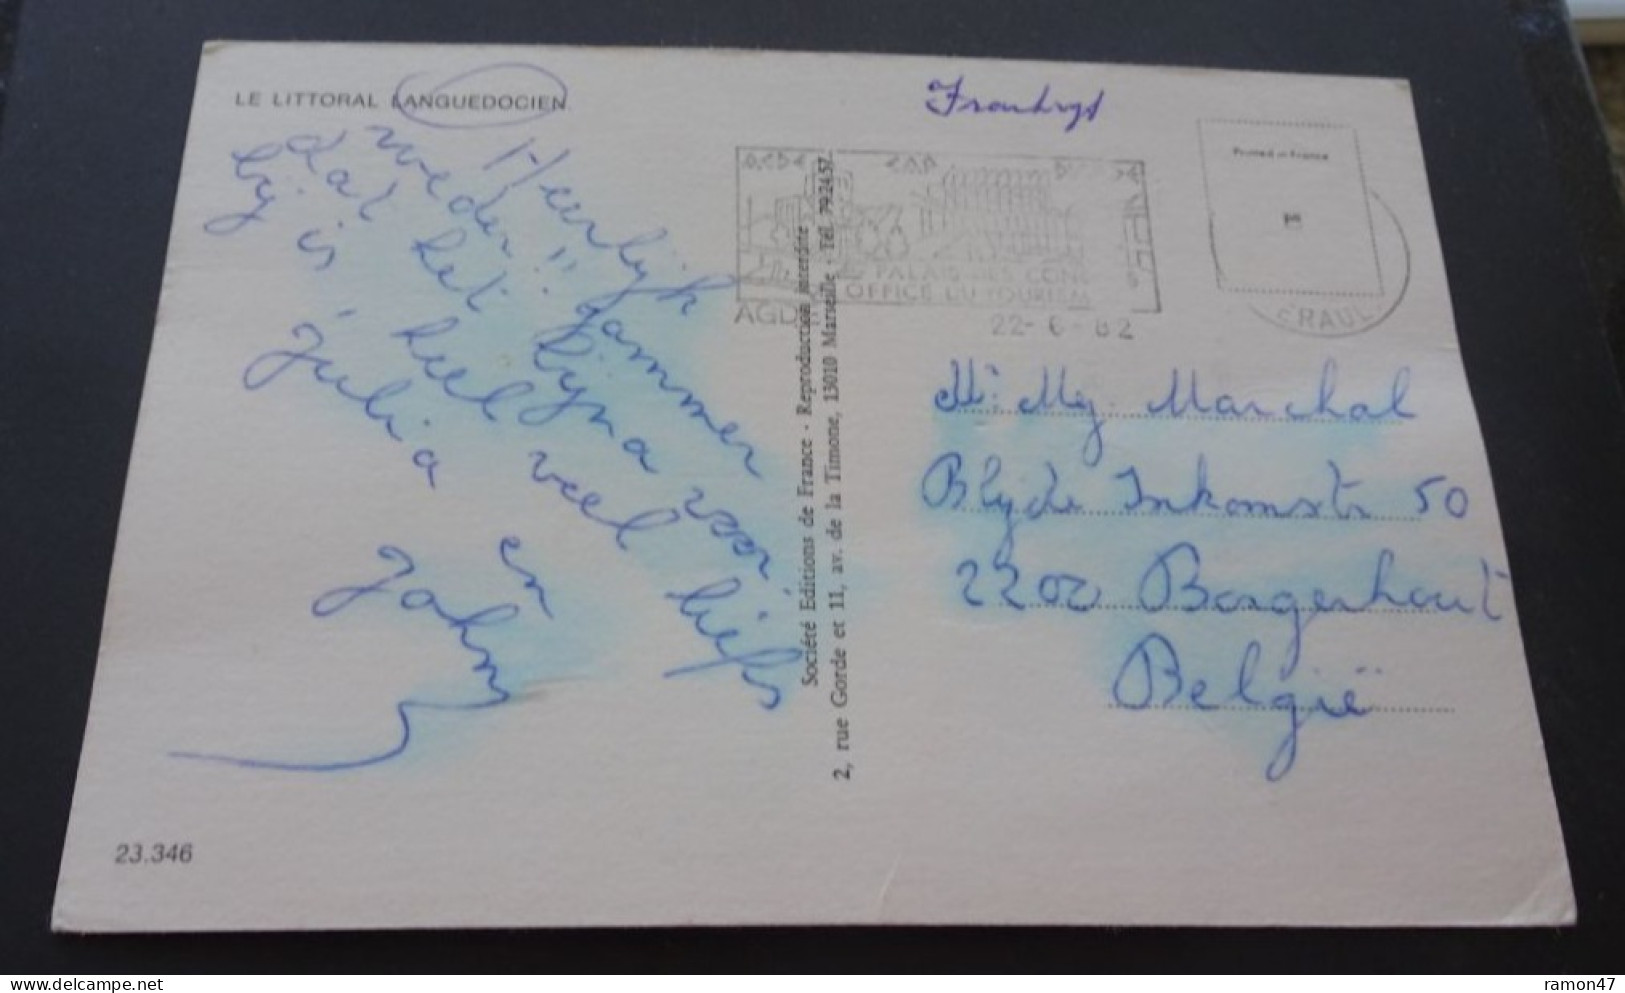 LE LITTORAL LANGUEDOCIEN.
Heerlijk
weder!! jammer
dat het bijna voor-
bij is, heel veel liefs
Julia en
John
23.346
Société Editions de France - Reproduction interdite
2, rue Gorde et 11, av. de la Timone, 13010 Marseille - Tél. 79.24.57.
Frankrijk
Printed in France
PALAIS DES CONG
OFFICE DU TOURISM
AGDE
22-6-82
HERAULT
Mr. Mej. Marchal
Blijde Inkomstr 50
2200 Borgerhout
België
delcampe.net
ramon47